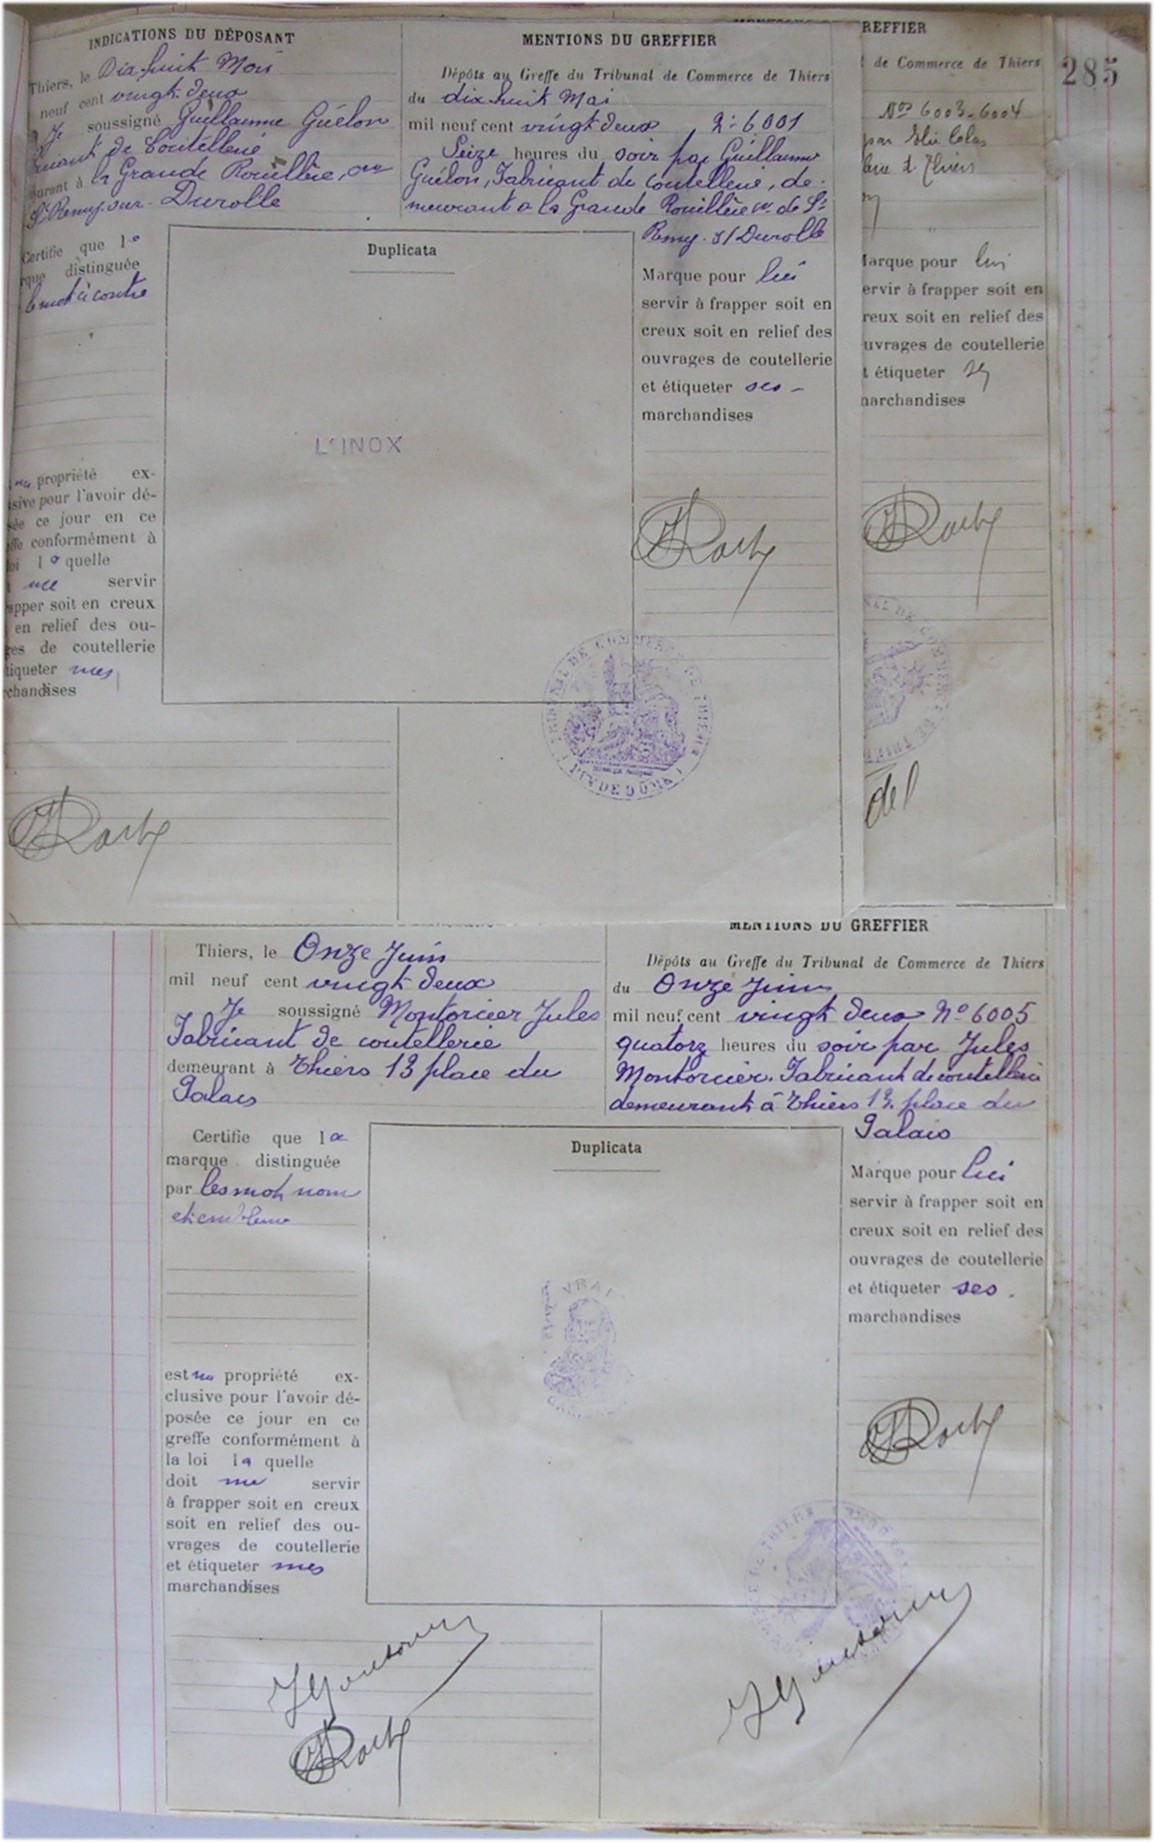 INDICATIONS DU DÉPOSANT
Thiers, le Dix huit Mai
neuf cent vingt deux
Je soussigné Guillaume Guélon
de Coutellerie
à la Grande Rouillère, cne
St Remy-sur-Durolle
Certifie que la
distinguée
le mot ci contre
ma propriété ex-
sive pour l'avoir dé-
ce jour en ce
conformément à
loi la quelle
me servir
apper soit en creux
en relief des ou-
ges de coutellerie
tiqueter mes
chandises
MENTIONS DU GREFFIER
Dépôts au Greffe du Tribunal de Commerce de Thiers
du dix huit Mai
mil neuf cent vingt deux No 6001
Seize heures du soir par Guillaume
Guélon, Fabricant de coutellerie, de-
meurant à la Grande Rouillère cne de St
Remy-s/Durolle
Duplicata
L'INOX
Marque pour lui
servir à frapper soit en
creux soit en relief des
ouvrages de coutellerie
et étiqueter ses
marchandises
TRIBUNAL DE COMMERCE DE THIERS
PUY DE DÔME
REFFIER
de Commerce de Thiers
Nos 6003-6004
par
Thiers
Marque pour lui
ervir à frapper soit en
reux soit en relief des
uvrages de coutellerie
t étiqueter
marchandises
del
285
Thiers, le Onze Juin
mil neuf cent vingt deux
Je soussigné Montorcier Jules
Fabricant de coutellerie
demeurant à Thiers 13 place du
Palais
Certifie que la
marque distinguée
par les mot, nom
et emblème
est ma propriété ex-
clusive pour l'avoir dé-
posée ce jour en ce
greffe conformément à
la loi la quelle
doit me servir
à frapper soit en creux
soit en relief des ou-
vrages de coutellerie
et étiqueter mes
marchandises
MENTIONS DU GREFFIER
Dépôts au Greffe du Tribunal de Commerce de Thiers
du Onze Juin
mil neuf cent vingt deux No 6005
quatorz heures du soir par Jules
Montorcier, Fabricant de coutellerie
demeurant à Thiers 13, place du
Palais
Duplicata
VRAI
Marque pour lui
servir à frapper soit en
creux soit en relief des
ouvrages de coutellerie
et étiqueter ses
marchandises